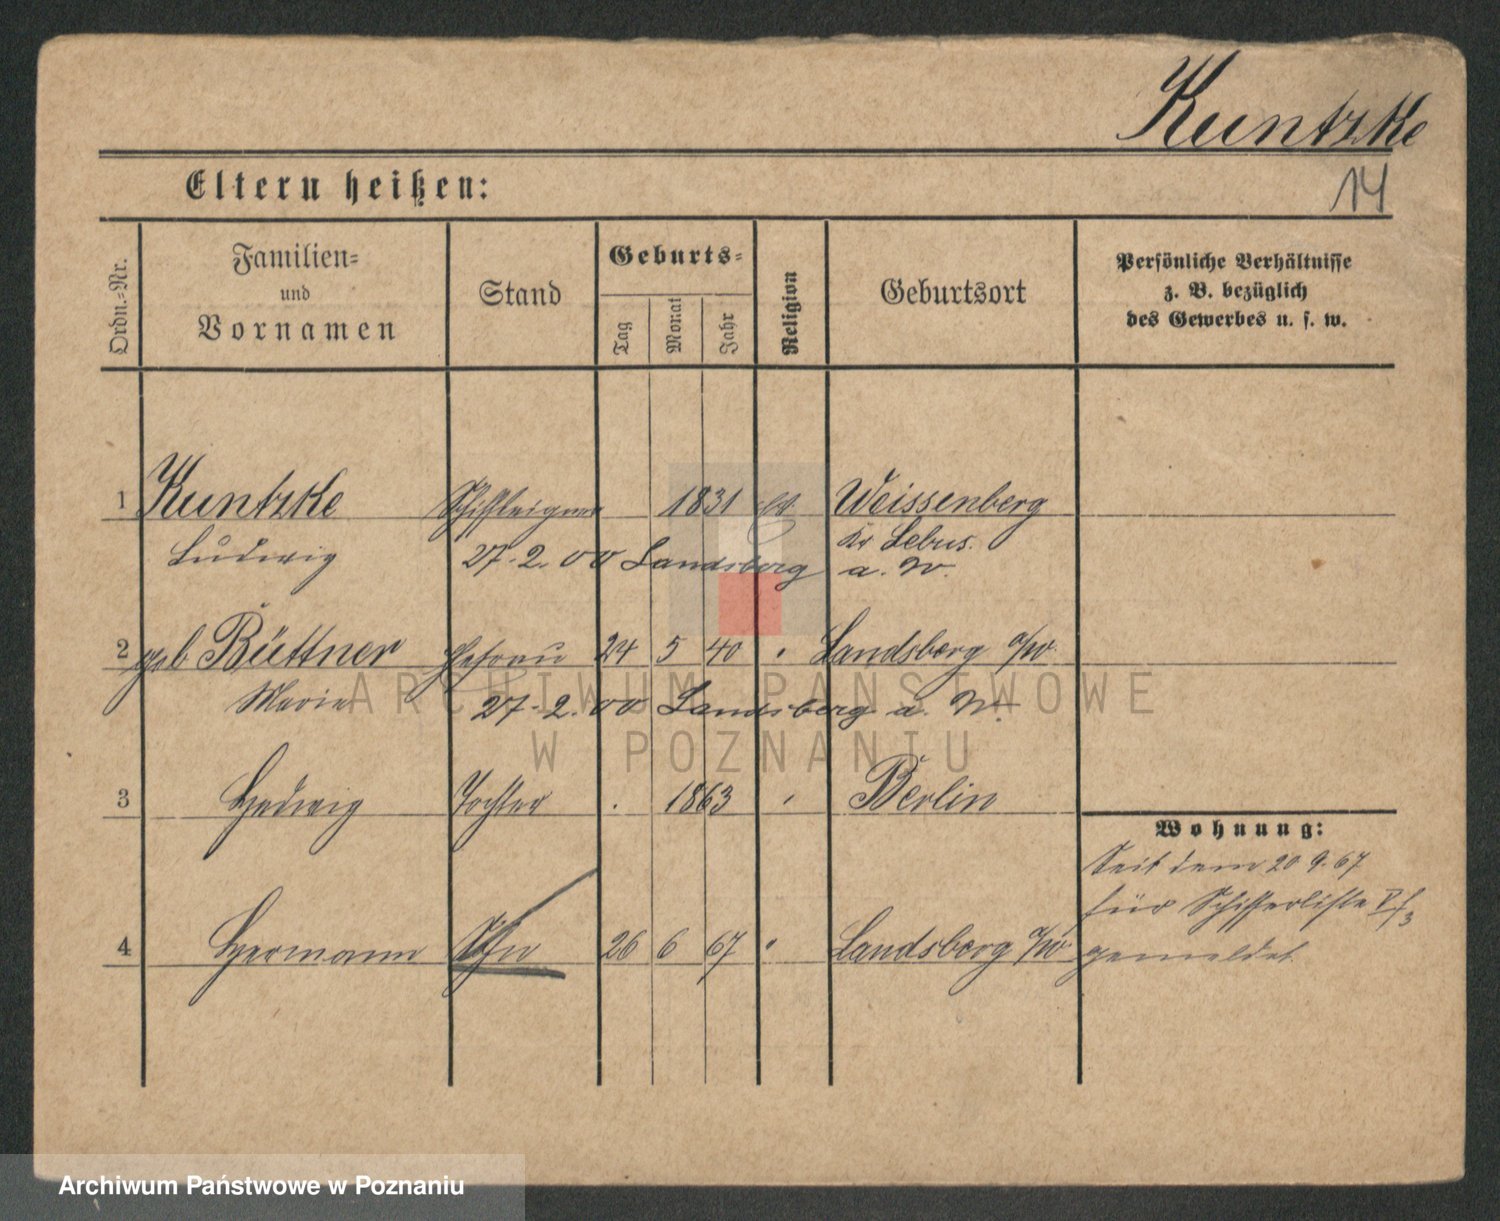 Kuntzke
Eltern heißen:
14
Ordn.-Nr.
Familien-
und
Vornamen
Stand
Geburts-
Tag
Monat
Jahr
Religion
Geburtsort
Persönliche Verhältnisse
z. B. bezüglich
des Gewerbes u. s. w.
1 Kuntzke Schiffseigner 1831 Weissenberg
Kr Lebus.
Ludwig 27.2.00 Landsberg a. W.
2 geb Büttner Ehefrau 24 5 40 " Landsberg a/W.
Marie 27.2.00 Landsberg a. W.
3 Hedwig Tochter . 1863 " Berlin
Wohnung:
Seit dem 20 9. 67
für Schifferliste
4 Hermann Sohn 26 6 67 " Landsberg a/W
gemeldet.
ARCHIWUM PAŃSTWOWE
W POZNANIU
Archiwum Państwowe w Poznaniu